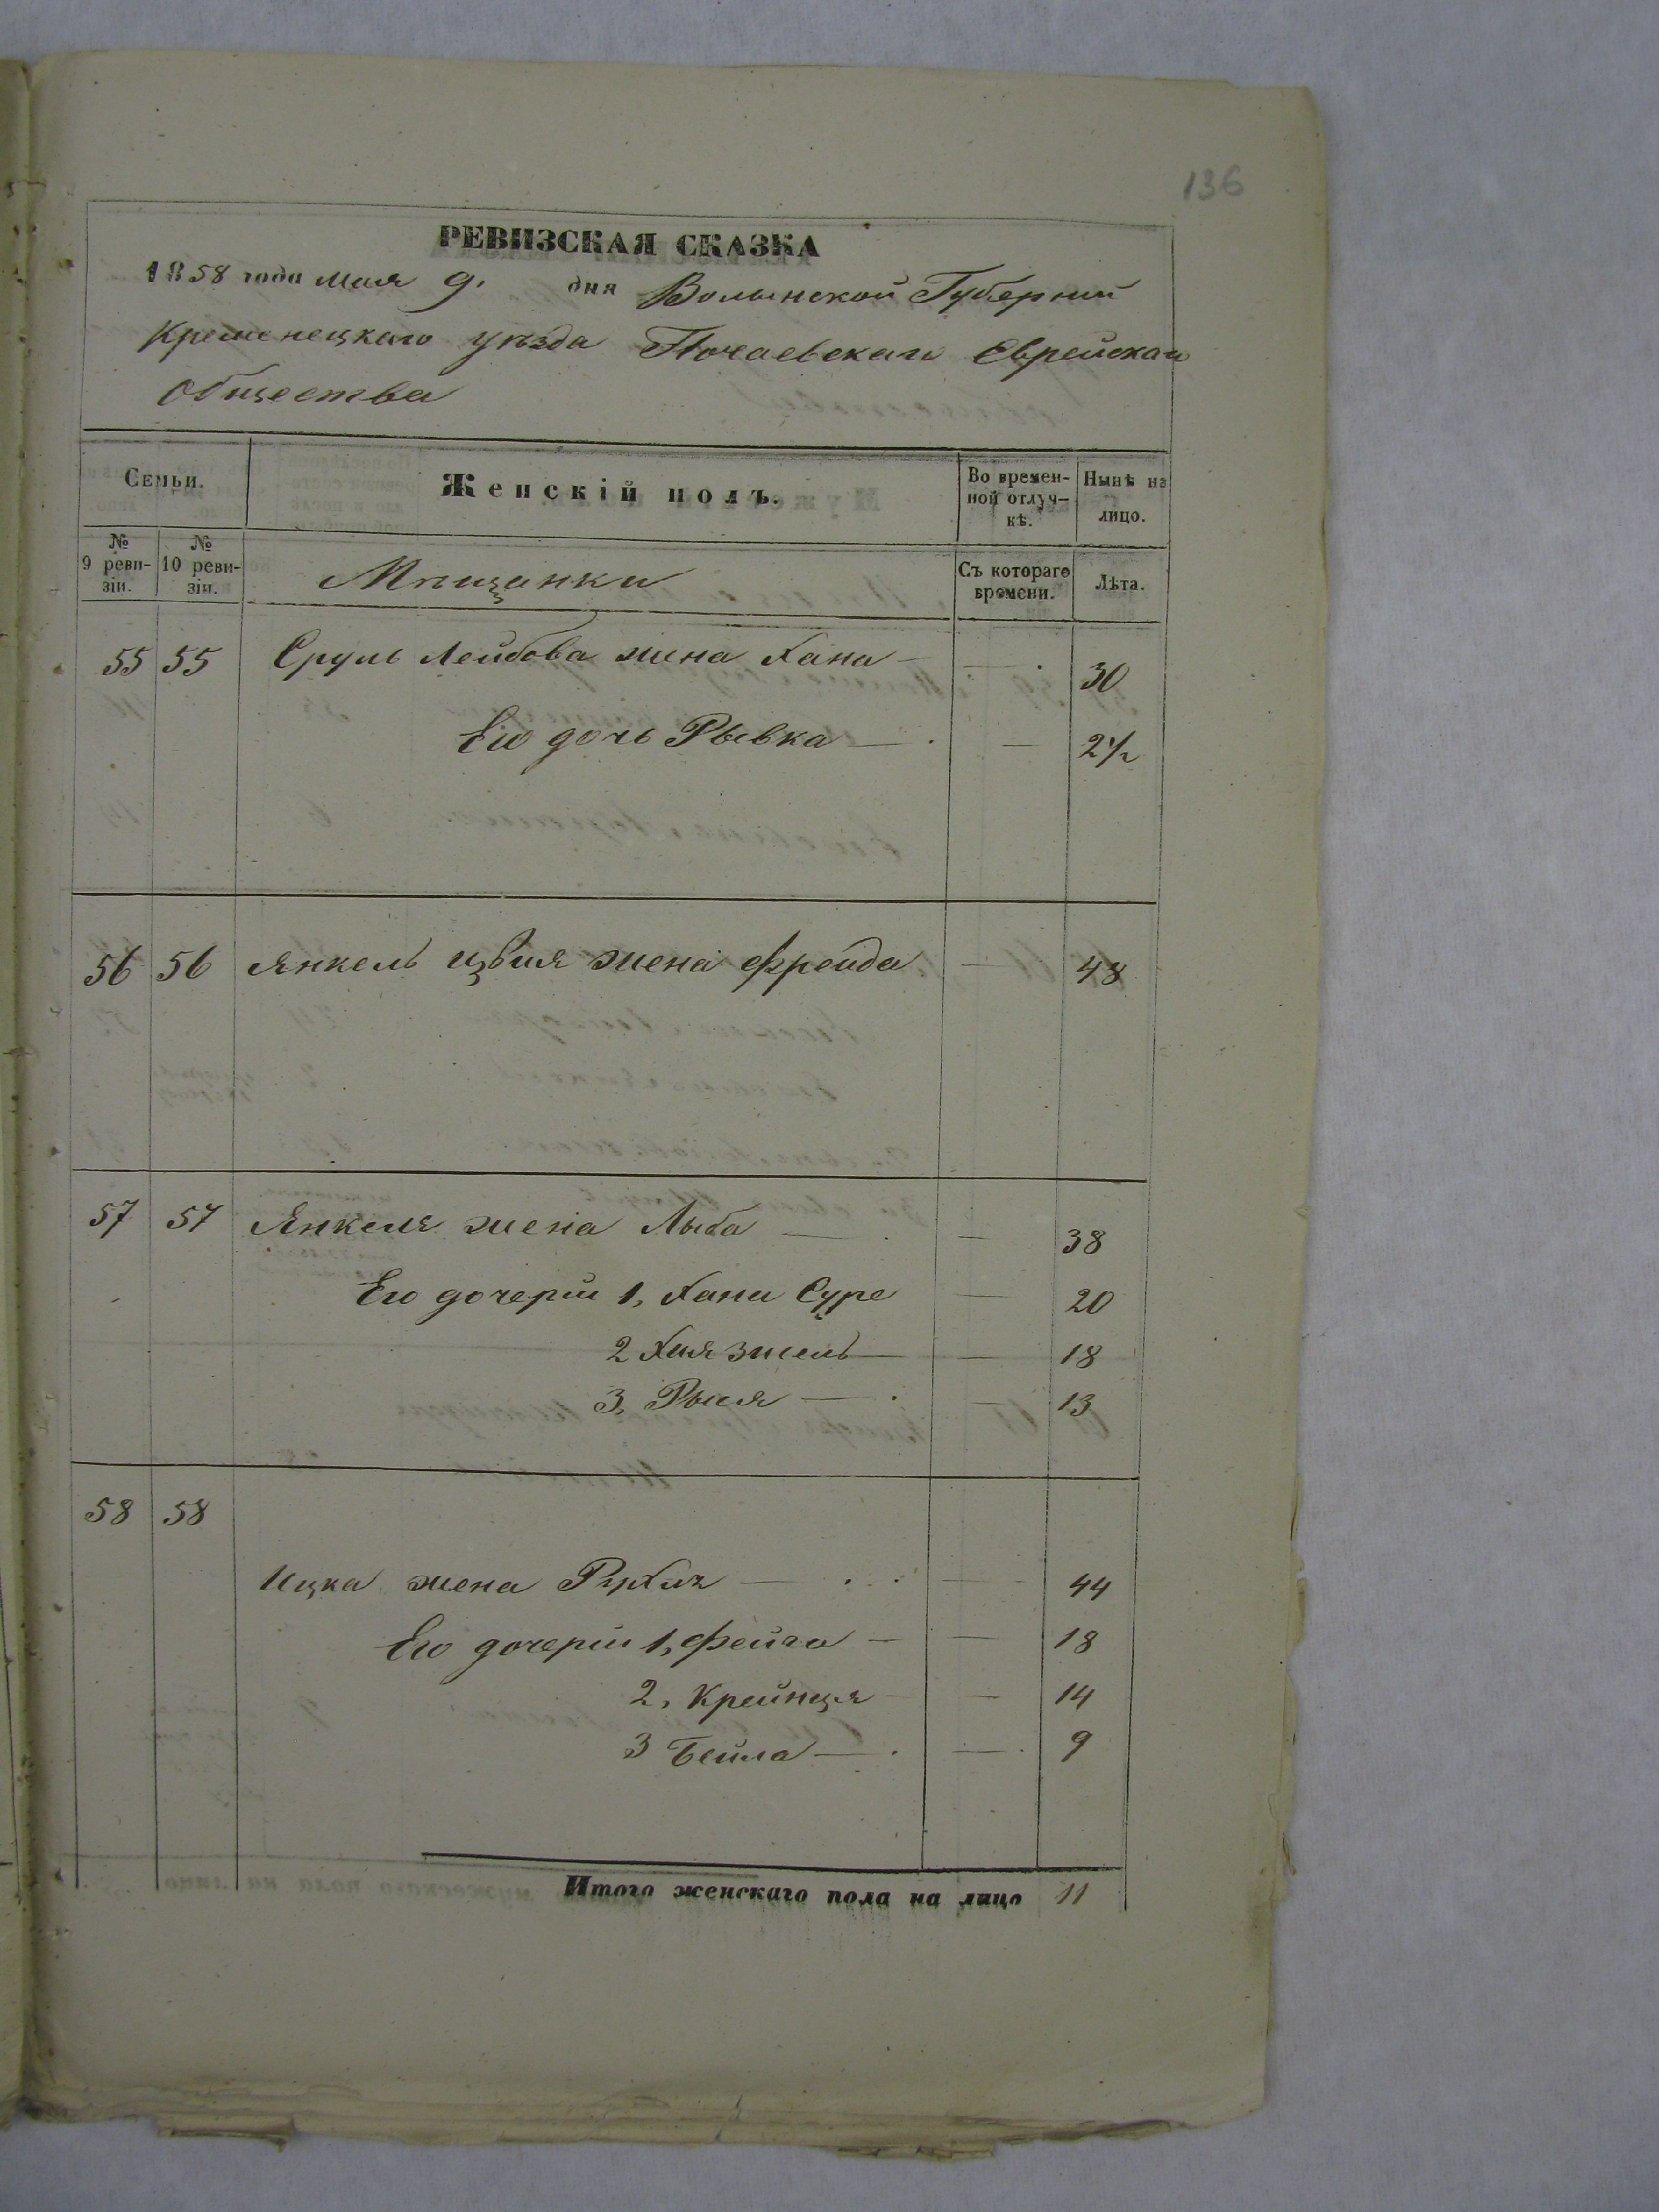 136
РЕВИЗСКАЯ СКАЗКА
1858 года мая 9. дня Волынской Губернии
Кременецкаго уѣзда Почаевскаго Еврейскаго
Общества
Семьи.
Женскій полъ.
Во времен-
ной отлуч-
кѣ.
Нынѣ на
лицо.
№
9 реви-
зіи.
№
10 реви-
зіи.
Мѣщанки
Съ котораго
времени.
Лѣта.
55 55 Сруль Лейбова жена Хана — — 30
Его дочь Рывка — — 2 1/2
56 56 Янкель жена Фрейда — 48
57 57 Янкеля жена Лыба — — 38
Его дочерии 1, Хана Суре — 20
2 Хая — — 18
3, Рыся — — 13
58 58
Ицка жена Рухля — — 44
Его дочерии 1, Фейга — — 18
2, Крейнця — — 14
3 Бейла — — 9
Итого женскаго пола на лицо 11